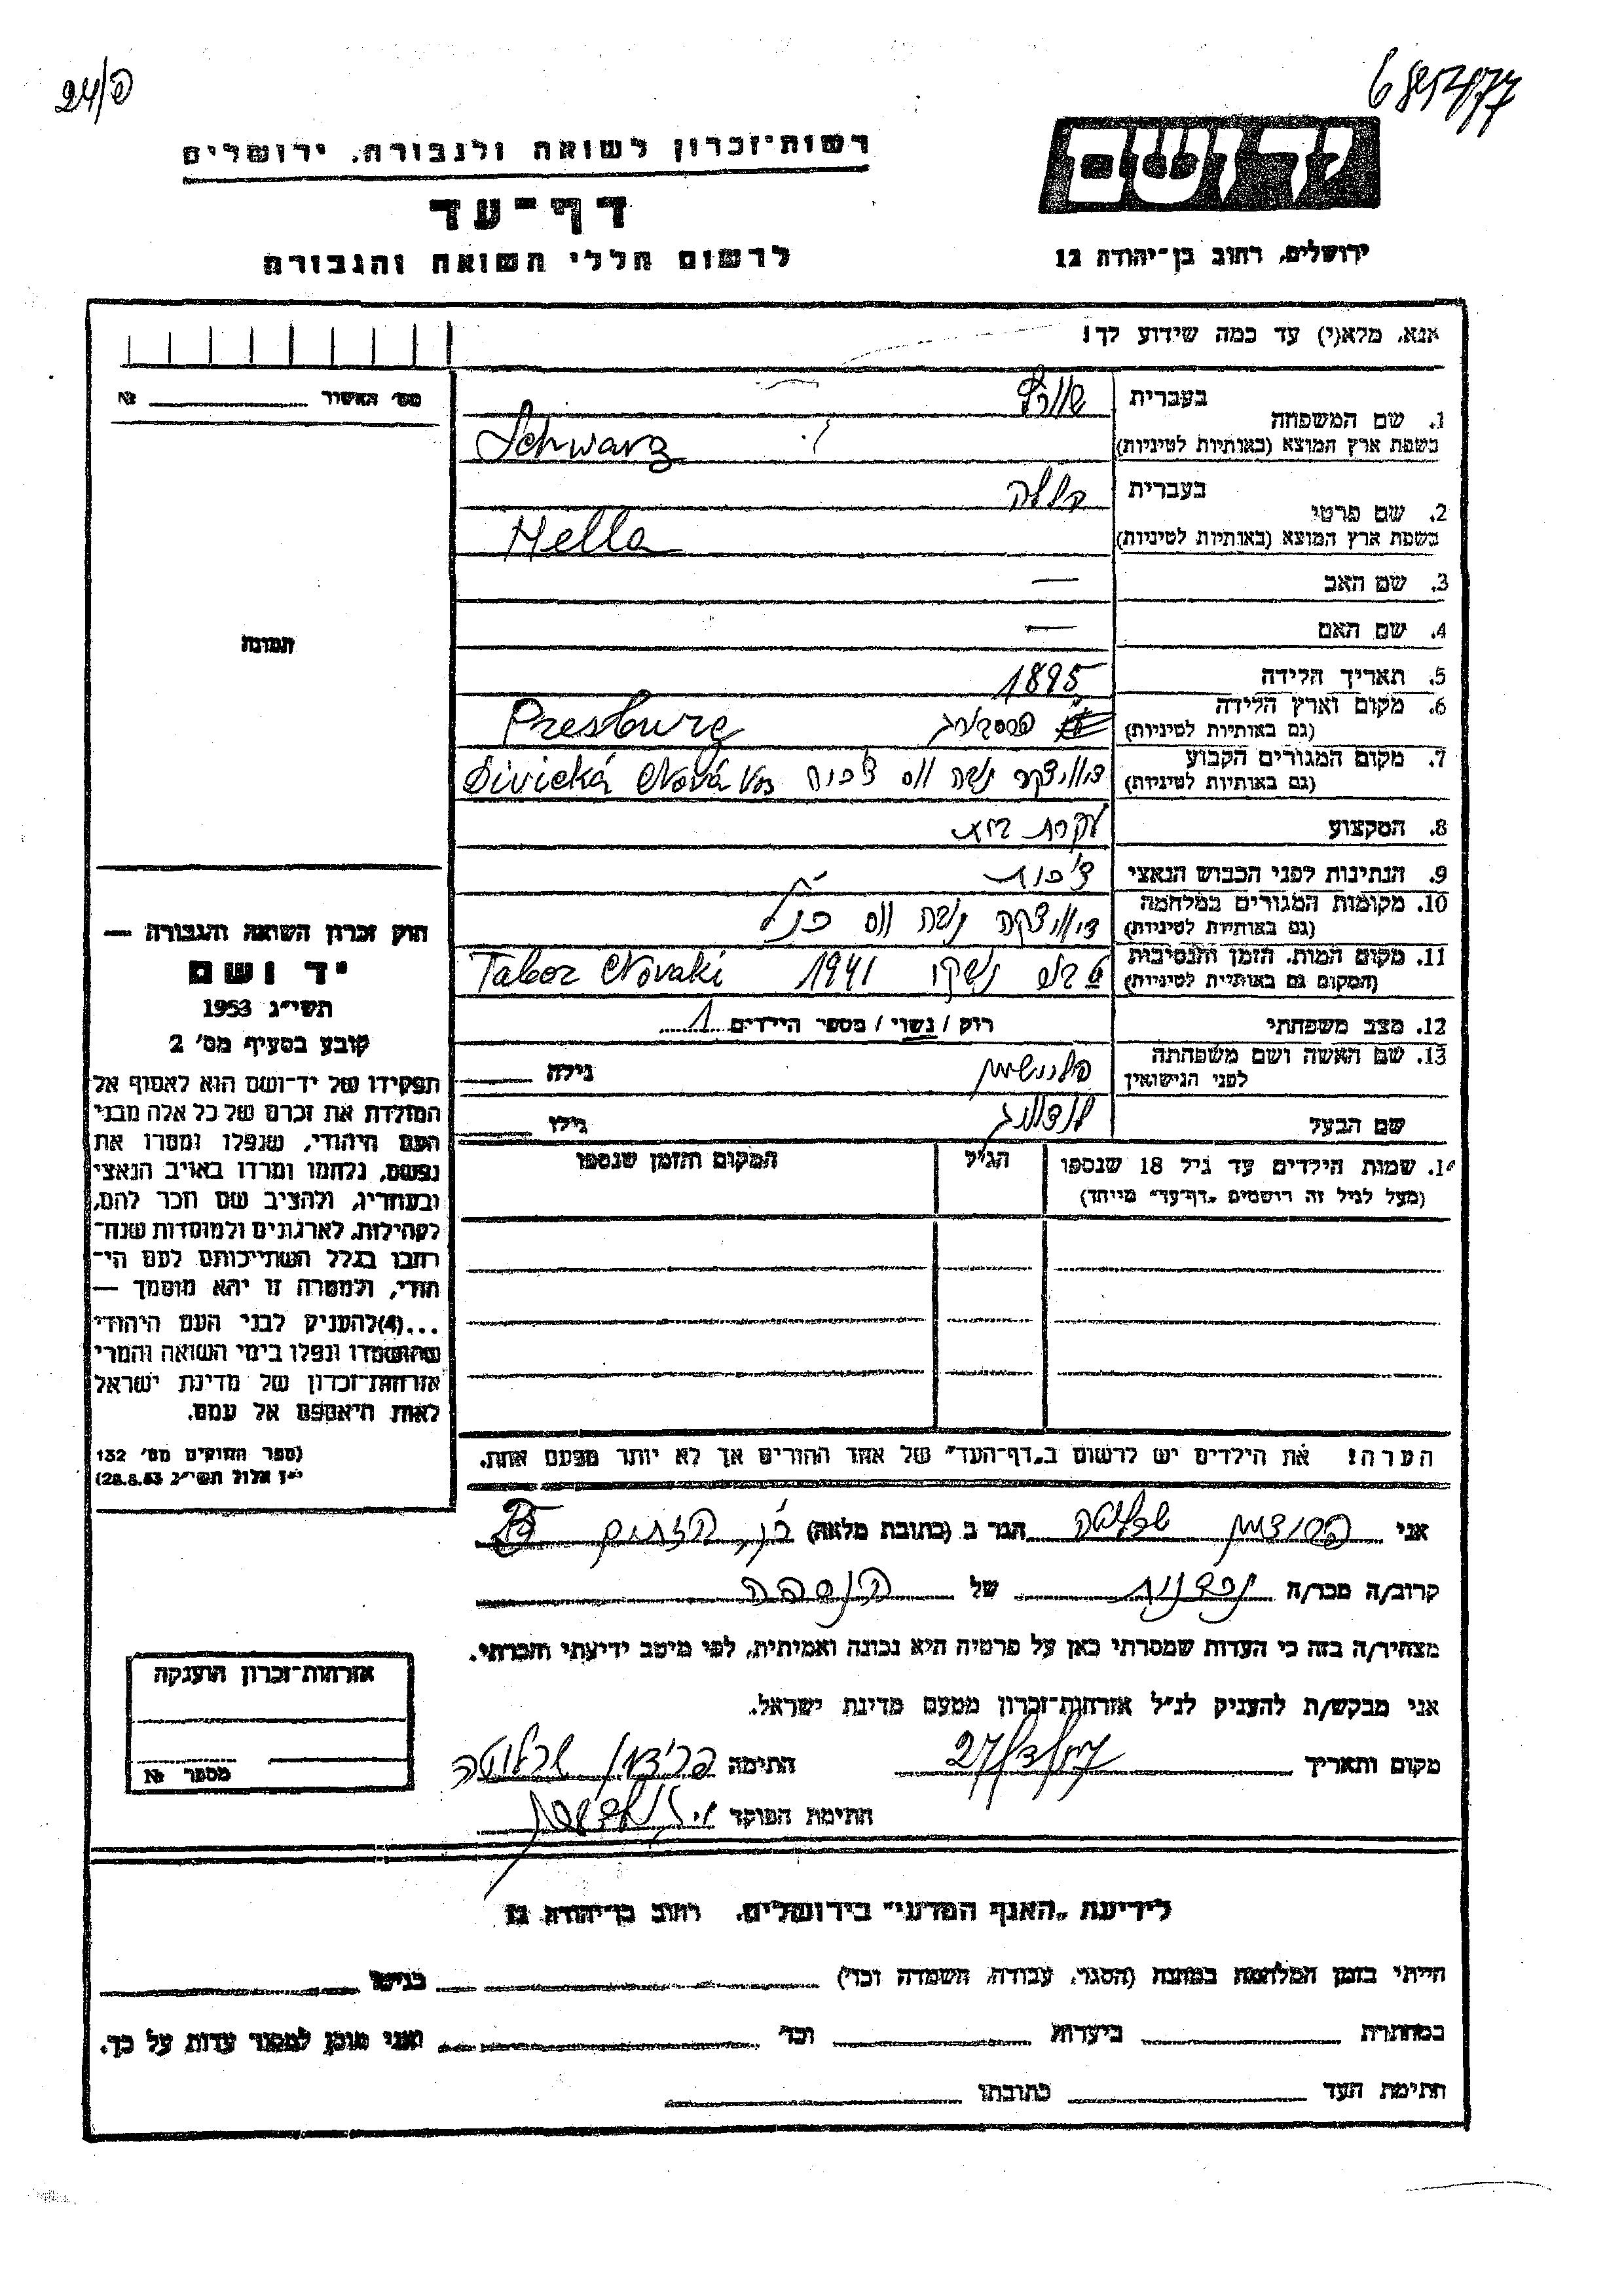 24/פ
רשות־זכרון לשואה ולגבורה, ירושלים
דף־עד
לרשום חללי השואה והגבורה
יד ושם
ירושלים, רחוב בן־יהודה 12
אנא, מלא(י) עד כמה שידוע לך!
מס׳ האשור № 
1. שם המשפחה
בעברית שורץ
בשפת ארץ המוצא (באותיות לטיניות) Schwarz
2. שם פרטי
בעברית הלה
בשפת ארץ המוצא (באותיות לטיניות) Hella
3. שם האב —
4. שם האם —
5. תאריך הלידה 1895
6. מקום וארץ הלידה
(גם באותיות לטיניות) פרסבורג Presburg
7. מקום המגורים הקבוע
(גם באותיות לטיניות) Nová Ves צ׳כוס
8. המקצוע עקרת בית
9. הנתינות לפני הכבוש הנאצי צ׳כוס
10. מקומות המגורים במלחמה
(גם באותיות לטיניות) כנ״ל
11. מקום המות, הזמן והנסיבות
(המקום גם באותיות לטיניות) 1941 Tabor Novaki
12. מצב משפחתי רוק / נשוי / מספר הילדים 1
13. שם האשה ושם משפחתה
לפני הנישואין גילה
שם הבעל לודוויג גילו
14. שמות הילדים עד גיל 18 שנספו
(מעל לגיל זה רושמים „דף־עד״ מייחד)
הגיל
המקום והזמן שנספו
הערה! את הילדים יש לרשום ב„דף־העד״ של אחד ההורים אך לא יותר מפעם אחת.
תמונה
חוק זכרון השואה והגבורה —
יד ושם
תשי״ג 1953
קובע בסעיף מס׳ 2
תפקידו של יד־ושם הוא לאסוף אל
המולדת את זכרם של כל אלה מבני
העם היהודי, שנפלו ומסרו את
נפשם, נלחמו ומרדו באויב הנאצי
ובעוזריו, ולהציב שם וזכר להם,
לקהילות, לארגונים ולמוסדות שנח־
רבו בגלל השתייכותם לעם הי־
הודי, ולמטרה זו יהא מוסמך —
...(4)להעניק לבני העם היהודי
שהושמדו ונפלו בימי השואה והמרי
אזרחות־זכרון של מדינת ישראל
לאות היאספם אל עמם.
(ספר החוקים מס׳ 132
י״ז אלול תשי״ג 28.8.53)
אני הגר ב (כתובת מלאה)
קרוב/ה מכר/ה של
מצהיר/ה בזה כי העדות שמסרתי כאן על פרטיה היא נכונה ואמיתית, לפי מיטב ידיעתי והכרתי.
אני מבקש/ת להעניק לנ״ל אזרחות־זכרון מטעם מדינת ישראל.
מקום ותאריך חתימה
חתימת הפוקד
אזרחות־זכרון הוענקה
מספר №
לידיעת „האגף המדעי״ בירושלים, רחוב בן־יהודה 12
הייתי בזמן המלחמה במחנה (הסגר, עבודה, השמדה וכד׳) בגיטו
במחתרת ביערות וכד׳ ואני מוכן למסור עדות על כך.
חתימת העד כתובתו